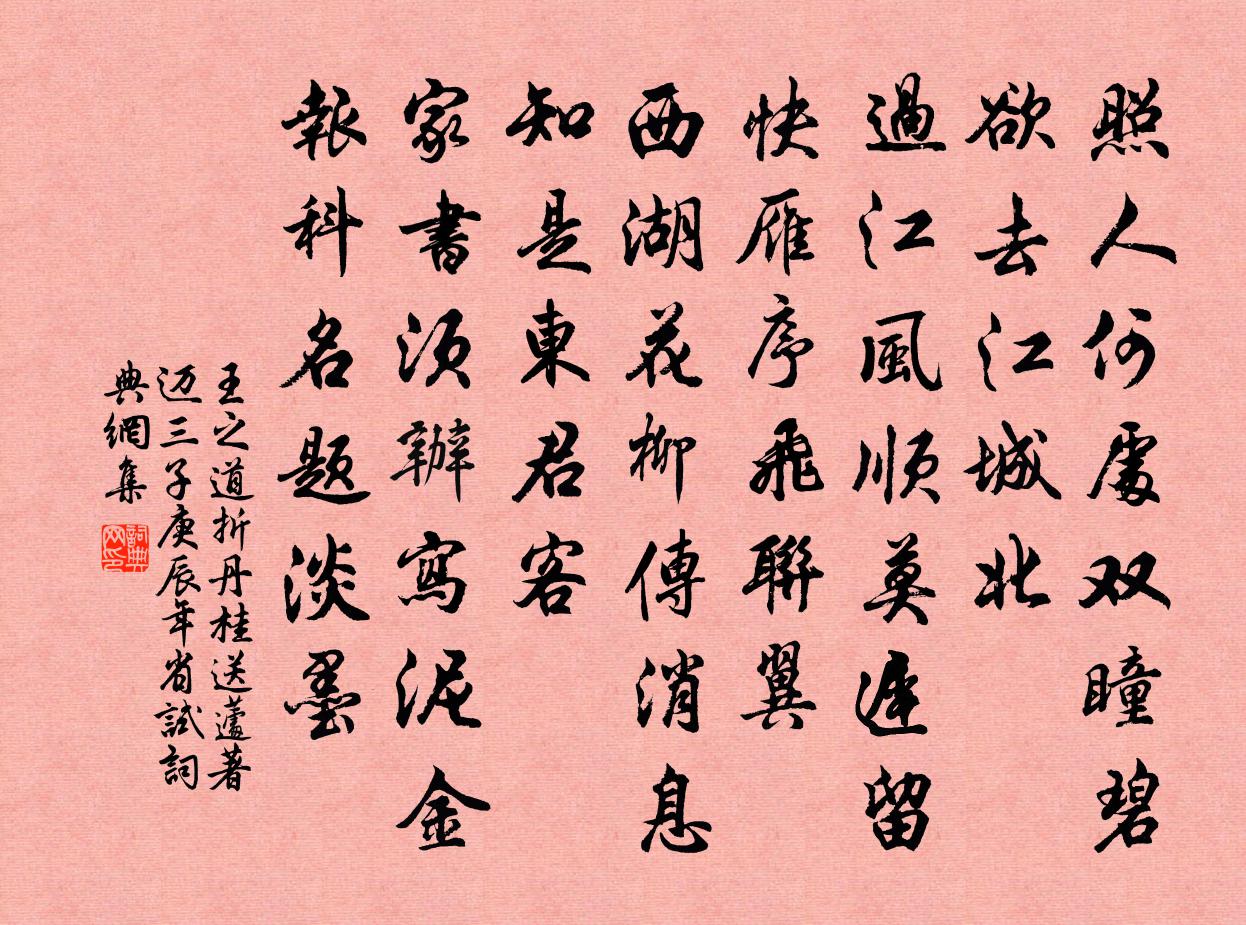 照人何處双瞳碧
欲去江城北
過江風順莫遲留
快雁序飛聯翼
西湖花柳傳消息
知是東君客
家書須辦寫泥金
報科名題淡墨
王之道折丹桂送蘆著
迈三子庚辰年省試詞
典網集
詞典网印